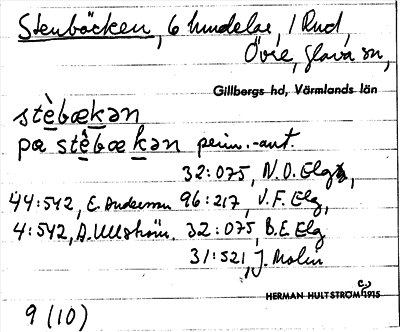 Stenbäcken, 6 hundelar, 1 Rud,
Övre, Glava sn,
Gillbergs hd, Värmlands län
stèbækən
pa stèbæ kən perim.-ant.
32:075, N.O. Elg,
44:542, E. Anderson 96:217, J.F. Elg,
4:542, A. Ullström. 32:075, B.E. Elg
31:521, J. Molin
HERMAN HULTSTRÖM 1915
9 (10)